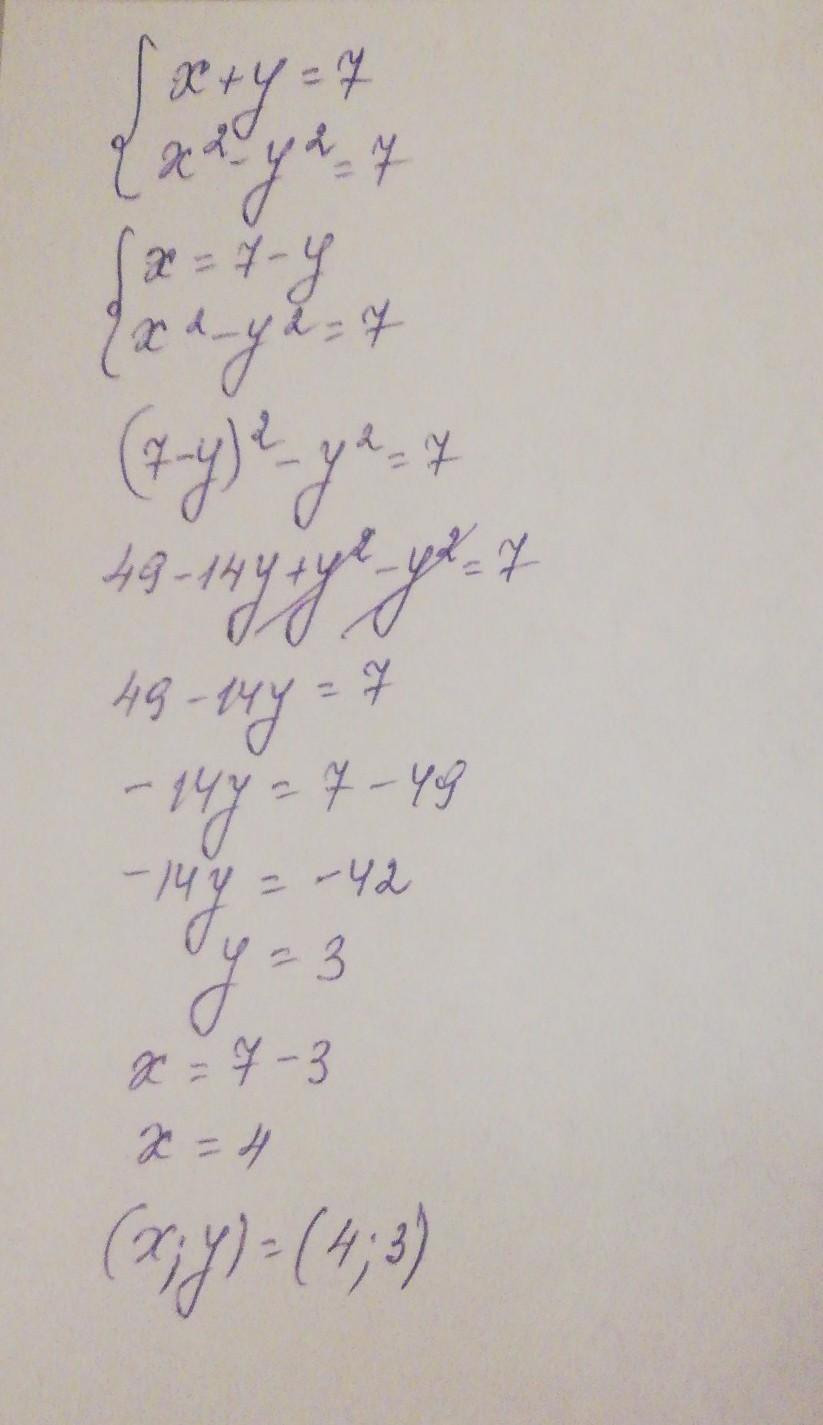 { x + y = 7
x² - y² = 7
{ x = 7 - y
x² - y² = 7
(7 - y)² - y² = 7
49 - 14y + y² - y² = 7
49 - 14y = 7
- 14y = 7 - 49
- 14y = - 42
y = 3
x = 7 - 3
x = 4
(x; y) = (4; 3)